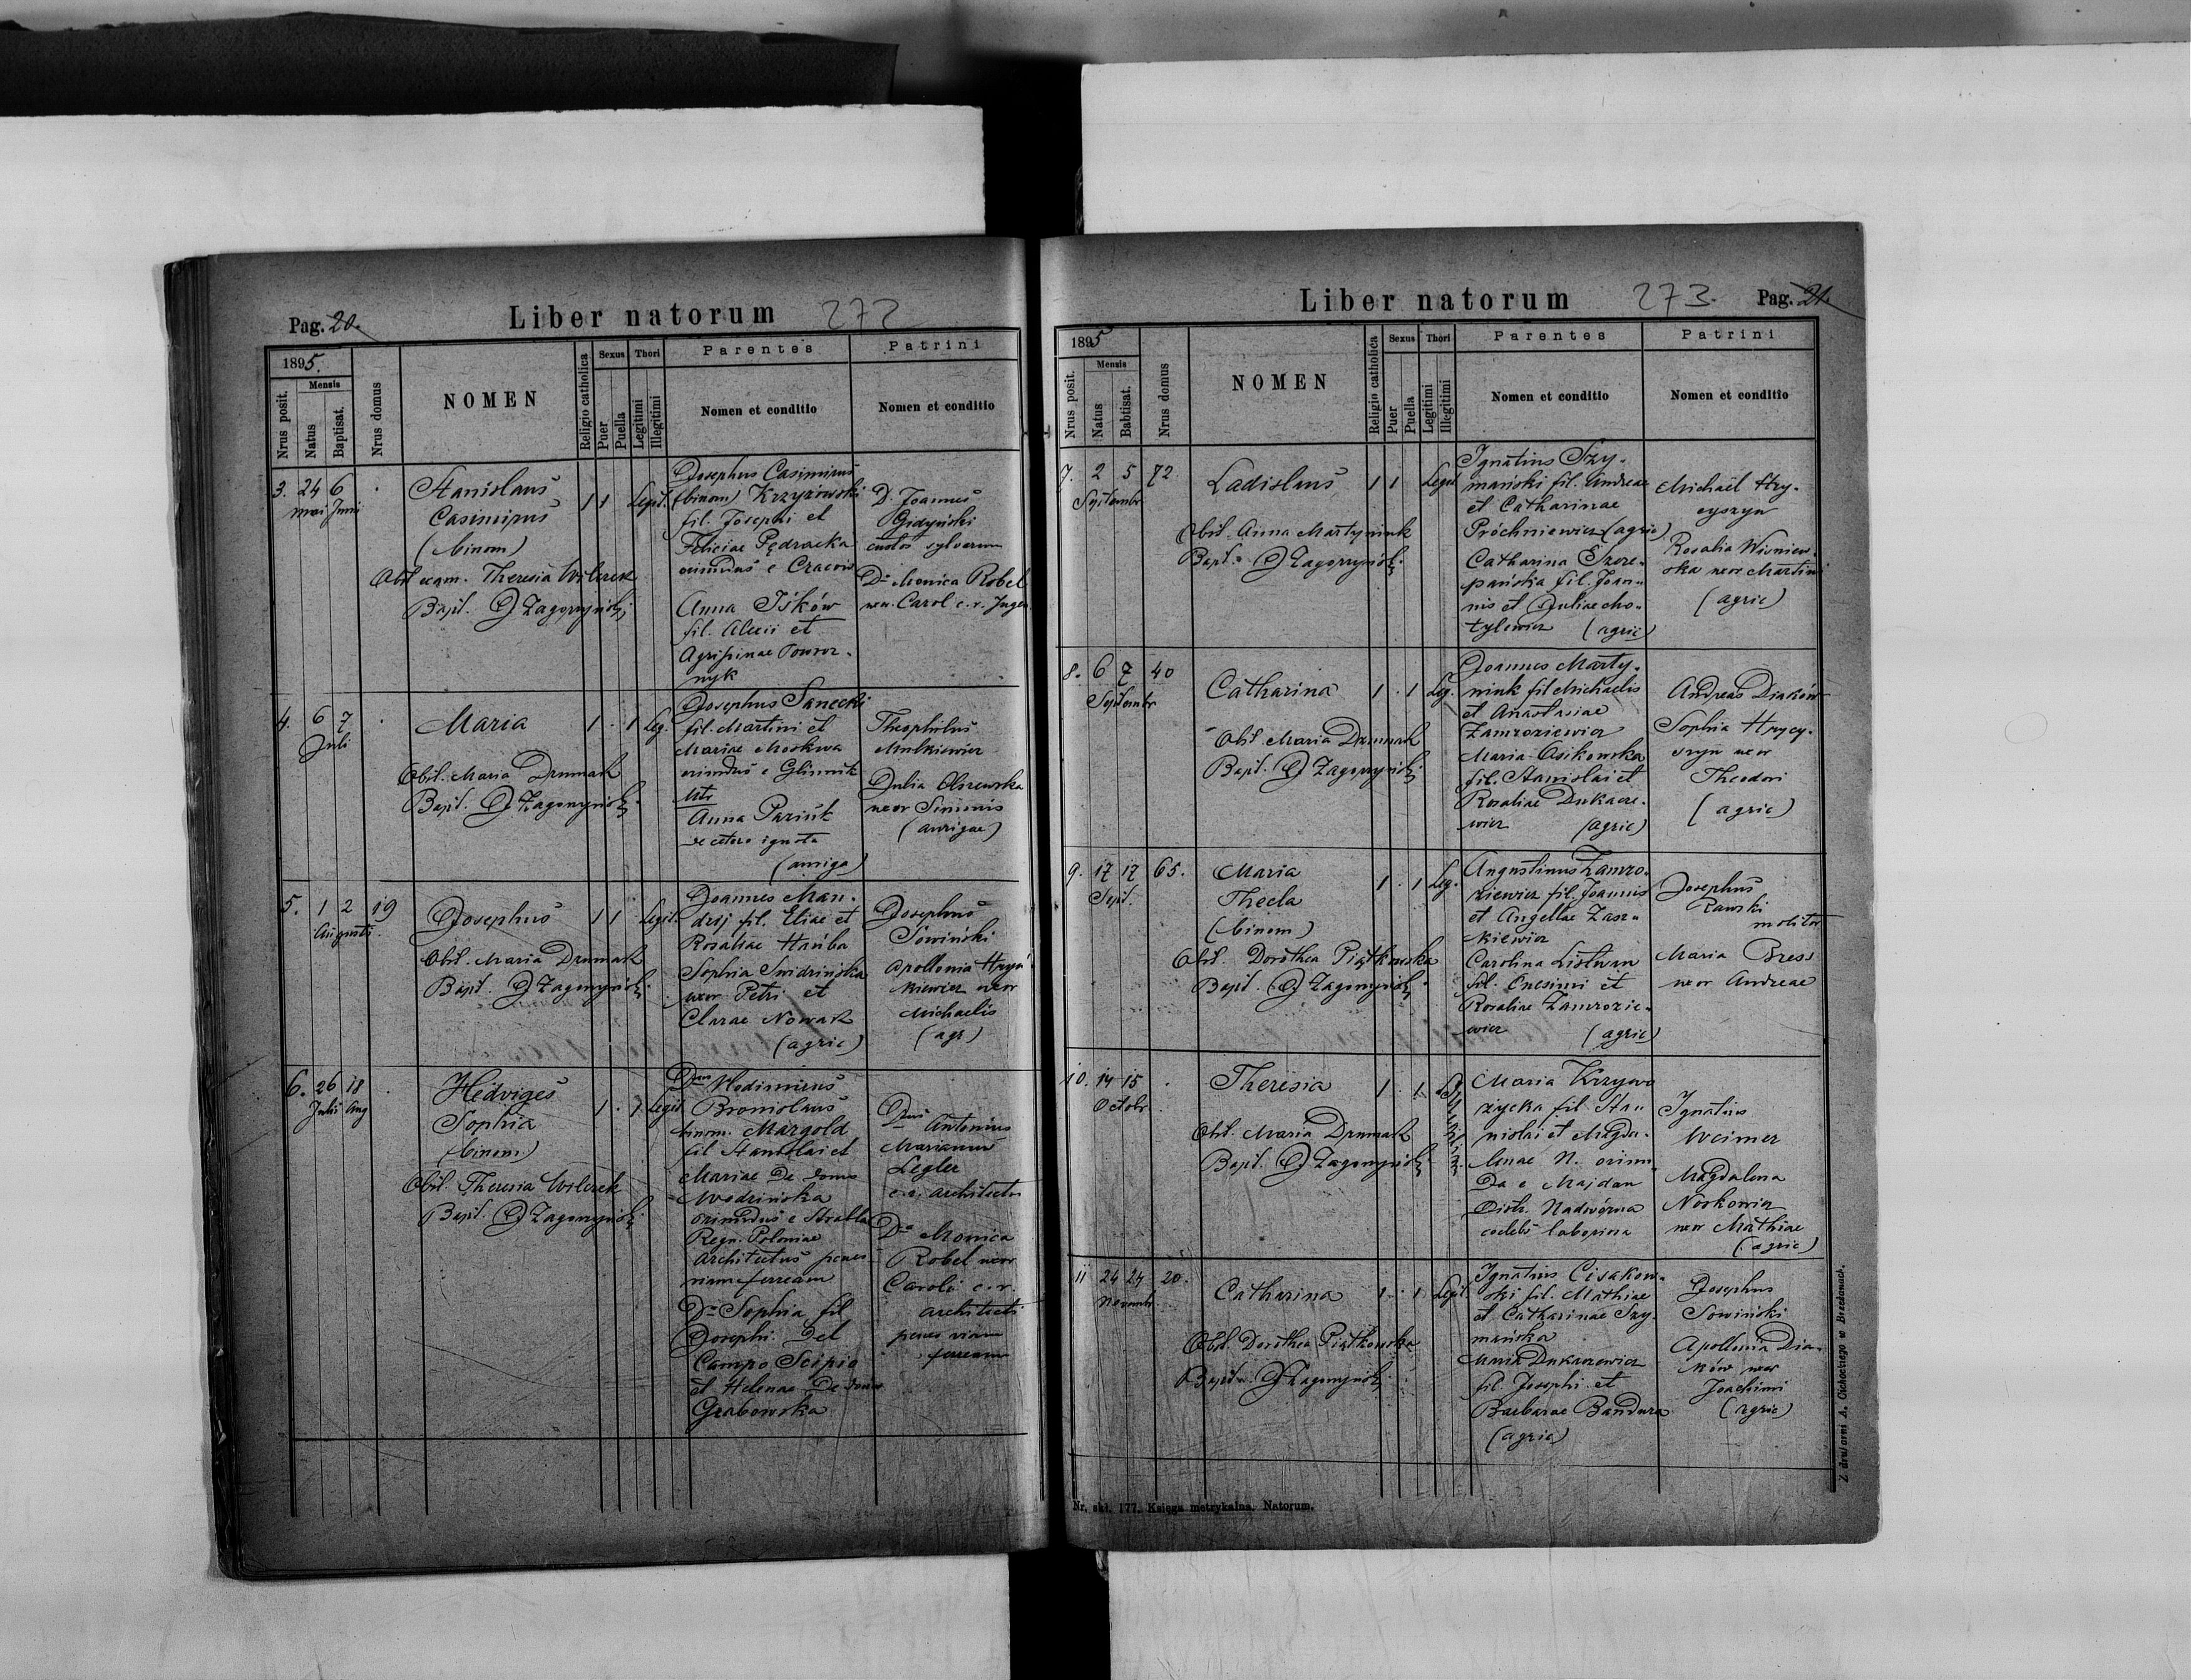 Pag. 20.
Liber natorum
272
1895.
Nrus posit.
Mensis
Natus
Baptisat.
Nrus domus
NOMEN
Religio catholica
Sexus
Puer
Puella
Thori
Legitimi
Illegitimi
Parentes
Nomen et conditio
Patrini
Nomen et conditio
3. 24 6
mai Junii
Stanislaus
Casimirus
(binom)
Obst exam. Theresia Wilczek
Bapt. J Zagorzyński
1 1 Legit.
Josephus Casimirus
(binom) Krzyżowski
fil. Josephi et
Feliciae Pędracka
oriundus e Cracow
Anna Iśków
fil. Alexii et
Agripinae Powroz-
nyk
D. Joannes
Gidyński
custos sylvarum
Dna Monica Robel
uxor. Carol c. r. Ingen.
4. 6 7
Juli
Maria
Obst. Maria Drumak
Bapt. J Zagorzyński
1 . 1 Leg.
Josephus Sanecki
fil. Martini et
Mariae Moskwa
oriundus e Glinnik
Anna Pariuk
de cetero ignota
(auriga)
Theophilus
Mulkiewicz
Julia Olszewska
uxor Simonis
(aurigae)
5. 1 2 19
Augusti
Josephus
Obst. Maria Drumak
Bapt. J Zagorzyński
1 1 Legit.
Joannes Man-
dzij fil. Eliae et
Rosaliae Hańba
Sophia Swidzińska
uxor Petri et
Clarae Nowak
(agric)
Josephus
Sowiński
Apollonia Hryń-
kiewicz uxor
Michaelis
(agr)
6. 26 18
Julii Aug
Hedviges
Sophia
(binom)
Obst. Theresia Wilczek
Bapt. J Zagorzyński
1 . 1 Legit
Dnus Wlodimirus
Bronislaus
binom. Margold
fil Stanislai et
Mariae De domo
Wodzińska
oriundus e
Regn. Poloniae
Architectus penes
viam ferream
Dna Sophia fil
Josephi Del
Campo Scipio
et Helenae De domo
Grabowska
Dnus Antonius
Marianus
Legler
c. r. architectus
Dna Monica
Robel uxor
Caroli c. r.
architecti
penes viam
ferream
Liber natorum
273.
Pag. 21.
1895
Nrus posit.
Mensis
Natus
Babtisat.
Nrus domus
NOMEN
Religio catholica
Sexus
Puer
Puella
Thori
Legitimi
Illegitimi
Parentes
Nomen et conditio
Patrini
Nomen et conditio
7. 2 5 72.
Septembr
Ladislaus
Obst. Anna Martyniuk
Bapt. J Zagorzyński
1 1 Legit
Ignatius Szy-
mański fil. Andreae
et Catharinae
Próchniewicz (agric)
Catharina Szcze-
pańska fil. Joan-
nis et Juliae Cho-
tylewicz (agric)
Michaël Hry-
cyszyn
Rosalia Wisniew-
ska uxor Martini
(agric)
8. 6 7 40
Septembr
Catharina
Obst. Maria Drumak
Bapt. J Zagorzyński
1 . 1 Leg.
Joannes Marty-
niuk fil Michaelis
et Anastasiae
Zamroziewicz
Maria Osikowska
fil. Stanislai et
Rosaliae Dukacze-
wicz (agric)
Andreas Diaków
Sophia Hrycy-
szyn uxor
Theodori
(agric)
9. 17 17 65.
Sept.
Maria
Thecla
(binom)
Obst. Dorothea Piątkowska
Bapt. J Zagorzyński
1 . 1 Leg.
Augustinus Zamro-
ziewicz fil. Joannis
et Angellae Zasz-
kiewicz
Carolina Listwan
fil. Onesimi et
Rosaliae Zamrozie-
wicz (agric)
Josephus
Rawski
molitor
Maria Bress
uxor Andreae
10. 14 15 .
Octobr.
Theresia
Obst. Maria Drumak
Bapt. J Zagorzyński
1 . 1
Maria Krzywo
życka fil. Sta-
nislai et Magda-
lenae N. oriun-
da e Majdan
Distr. Nadwórna
coelebs laborina
Ignatius
Weimer
Magdalena
Noskowicz
uxor Mathiae
(agric)
11 24 24 20.
Novembr
Catharina
Obst. Dorothea Piątkowska
Bapt. J Zagorzyński
1 . 1 Legit.
Ignatius Cisakow-
ski fil. Mathiae
et Catharinae Szy-
mańska
Maria Dukaczewicz
fil. Josephi et
Barbarae Bandura
(agric)
Josephus
Sowiński
Apollonia Dia-
ków uxor
Joachimi
(agric)
Nr. skł. 177. Księga metrykalna. Natorum.
Z drukarni A. Cichockiego w Brzeżanach.